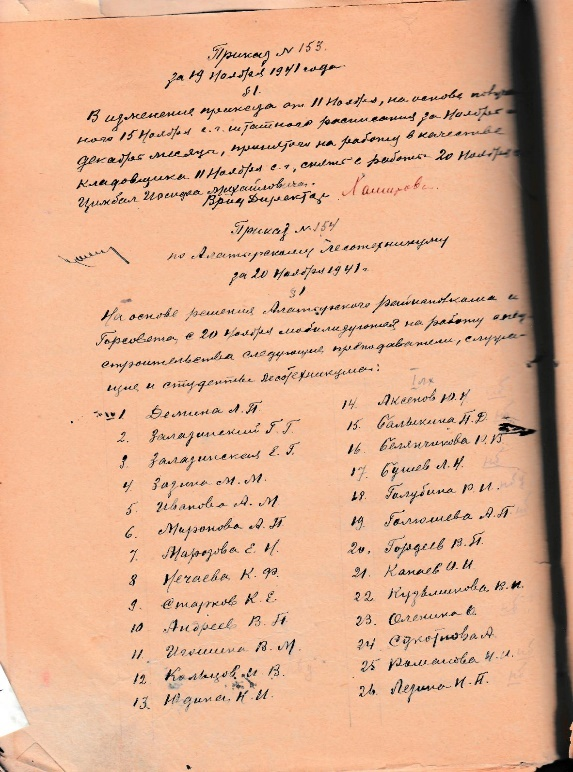 Приказ № 153.
за 19 Ноября 1941 года.
§1.
В изменение приказа от 11 Ноября, на основе получен-
ного 15 Ноября с.г. штатного расписания за Ноябрь и
декабрь месяцы, принятого на работу в качестве
кладовщика 11 Ноября с.г., снять с работы 20 Ноября
Цимбал Иосифа Михайловича.
Врид Директор
Приказ № 154
по Алатырскому Лесотехникуму
за 20 Ноября 1941г.
§1
На основе решения Алатырского Райисполкома и
Горсовета, с 20 Ноября мобилизуются на работу
строительства следующие преподаватели, служа-
щие и студенты Лесотехникума:
1 Демина Л. П.
2. Заладинский Г. Г.
3 Заладинская Е. Г.
4 Зодина М. М.
5 Иванова А. М
6. Миронова А. П
7. Марозова Е. Н.
8 Нечаева К. Ф.
9. Старков К. Е.
10 Андреев В. П
11 Игошина В. М
12 Кольцов В.
13. Юдина Н. И.
I лх
14. Аксенов
15. Балыкина П. Д.
16 Белянчикова
17. Бушев Л. Н.
18. Голубина Р. И.
19. Галюшева А. П
20. Гордеев В. П.
21. Капаев И. И
22 Кузьминова В. И.
23. Оленина
24 А.
25 Романова
26. Ледина Н. П.